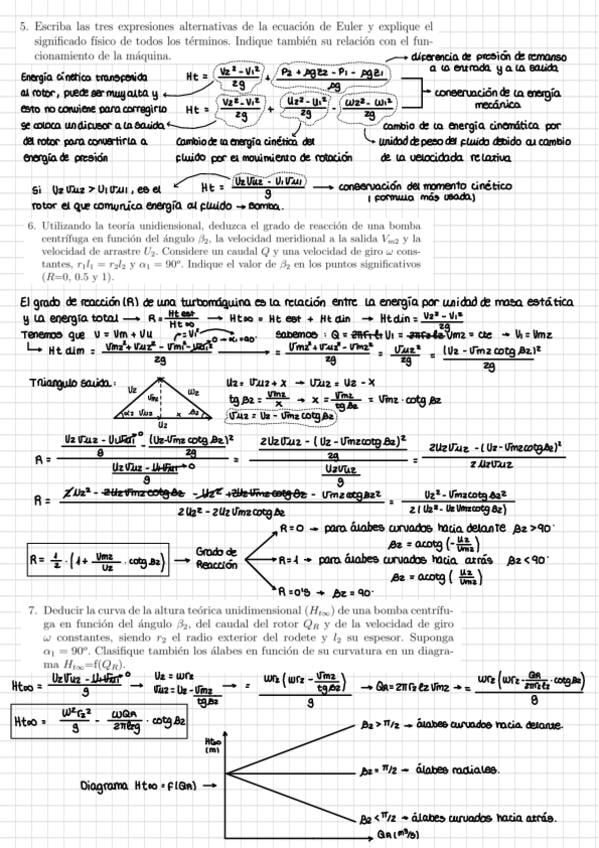 5. Escriba las tres expresiones alternativas de la ecuación de Euler y explique el
significado físico de todos los términos. Indique también su relación con el fun-
cionamiento de la máquina.
diferencia de presión de remanso
a la entrada y a la salida
Energía cinética transferida
al rotor, puede ser muy alta y
esto no conviene para corregirlo
se coloca un difusor a la salida
del rotor para convertirla a
energía de presión
Ht = (V2² - V1²)/2g + (P2 + ρgz2 - P1 - ρgz1)/ρg
conservación de la energía
mecánica
Ht = (V2² - V1²)/2g + (U2² - U1²)/2g - (W2² - W1²)/2g
Cambio de la energía cinética del
fluido por el movimiento de rotación
cambio de la energía cinemática por
unidad de peso del fluido debido al cambio
de la velocidad relativa
Si U2Vu2 > U1Vu1, es el
rotor el que comunica energía al fluido → Bomba.
Ht = (U2Vu2 - U1Vu1)/g → conservación del momento cinético
(formula más usada)
6. Utilizando la teoría unidiensional, deduzca el grado de reacción de una bomba
centrífuga en función del ángulo β2, la velocidad meridional a la salida Vm2 y la
velocidad de arrastre U2. Considere un caudal Q y una velocidad de giro ω cons-
tantes, r1l1 = r2l2 y α1 = 90º. Indique el valor de β2 en los puntos significativos
(R=0, 0.5 y 1).
El grado de reacción (R) de una turbomáquina es la relación entre la energía por unidad de masa estática
y la energía total → R = Ht est/Ht∞ → Ht∞ = Ht est + Ht din → Ht din = (V2² - V1²)/2g
Tenemos que V = Vm + Vu
Sabemos : Q = 2πr1l1V1 = 2πr2l2Vm2 = cte → V1 = Vm2
Ht dim = (Vm2² + Vu2² - Vm1² - Vu1²)/2g = (Vm2² + Vu2² - Vm2²)/2g = Vu2²/2g = (U2 - Vm2 cotg β2)²/2g
Triangulo salida :
V2 Vm2 W2
α2 Vu2 x β2
U2
U2 = Vu2 + x → Vu2 = U2 - x
tg β2 = Vm2/x → x = Vm2/tg β2 = Vm2 · cotg β2
Vu2 = U2 - Vm2 cotg β2
R = ((U2Vu2 - U1Vu1)/g - (U2 - Vm2 cotg β2)²/2g)/((U2Vu2 - U1Vu1)/g) = ((2U2Vu2 - (U2 - Vm2 cotg β2)²)/2g)/(U2Vu2/g) = (2U2Vu2 - (U2 - Vm2 cotg β2)²)/(2U2Vu2)
R = (2U2² - 2U2Vm2 cotg β2 - U2² + 2U2Vm2 cotg β2 - Vm2 cotg β2²)/(2U2² - 2U2Vm2 cotg β2) = (U2² - Vm2 cotg β2²)/(2(U2² - U2Vm2 cotg β2))
R = 1/2 · (1 + Vm2/U2 · cotg β2) → Grado de
Reacción
R=0 → para álabes curvados hacia delante β2 > 90º
β2 = acotg (-U2/Vm2)
R=1 → para álabes curvados hacia atrás β2 < 90º
β2 = acotg (U2/Vm2)
R = 0'5 → β2 = 90º
7. Deducir la curva de la altura teórica unidimensional (Ht∞) de una bomba centrífu-
ga en función del ángulo β2, del caudal del rotor QR y de la velocidad de giro
ω constantes, siendo r2 el radio exterior del rodete y l2 su espesor. Suponga
α1 = 90º. Clasifique también los álabes en función de su curvatura en un diagra-
ma Ht∞=f(QR).
Ht∞ = (U2Vu2 - U1Vu1)/g → U2 = ωr2
Vu2 = U2 - Vm2/tg β2 → = ωr2 (ωr2 - Vm2/tg β2)/g → QR = 2πr2l2Vm2 → = ωr2 (ωr2 - QR/2πr2l2 · cotg β2)/g
Ht∞ = ω²r2²/g - ωQR/2πl2g · cotg β2
Ht∞
(m)
β2 > π/2 → álabes curvados hacia delante.
Diagrama Ht∞ = f(QR) →
β2 = π/2 → álabes radiales.
β2 < π/2 → álabes curvados hacia atrás.
QR (m³/s)